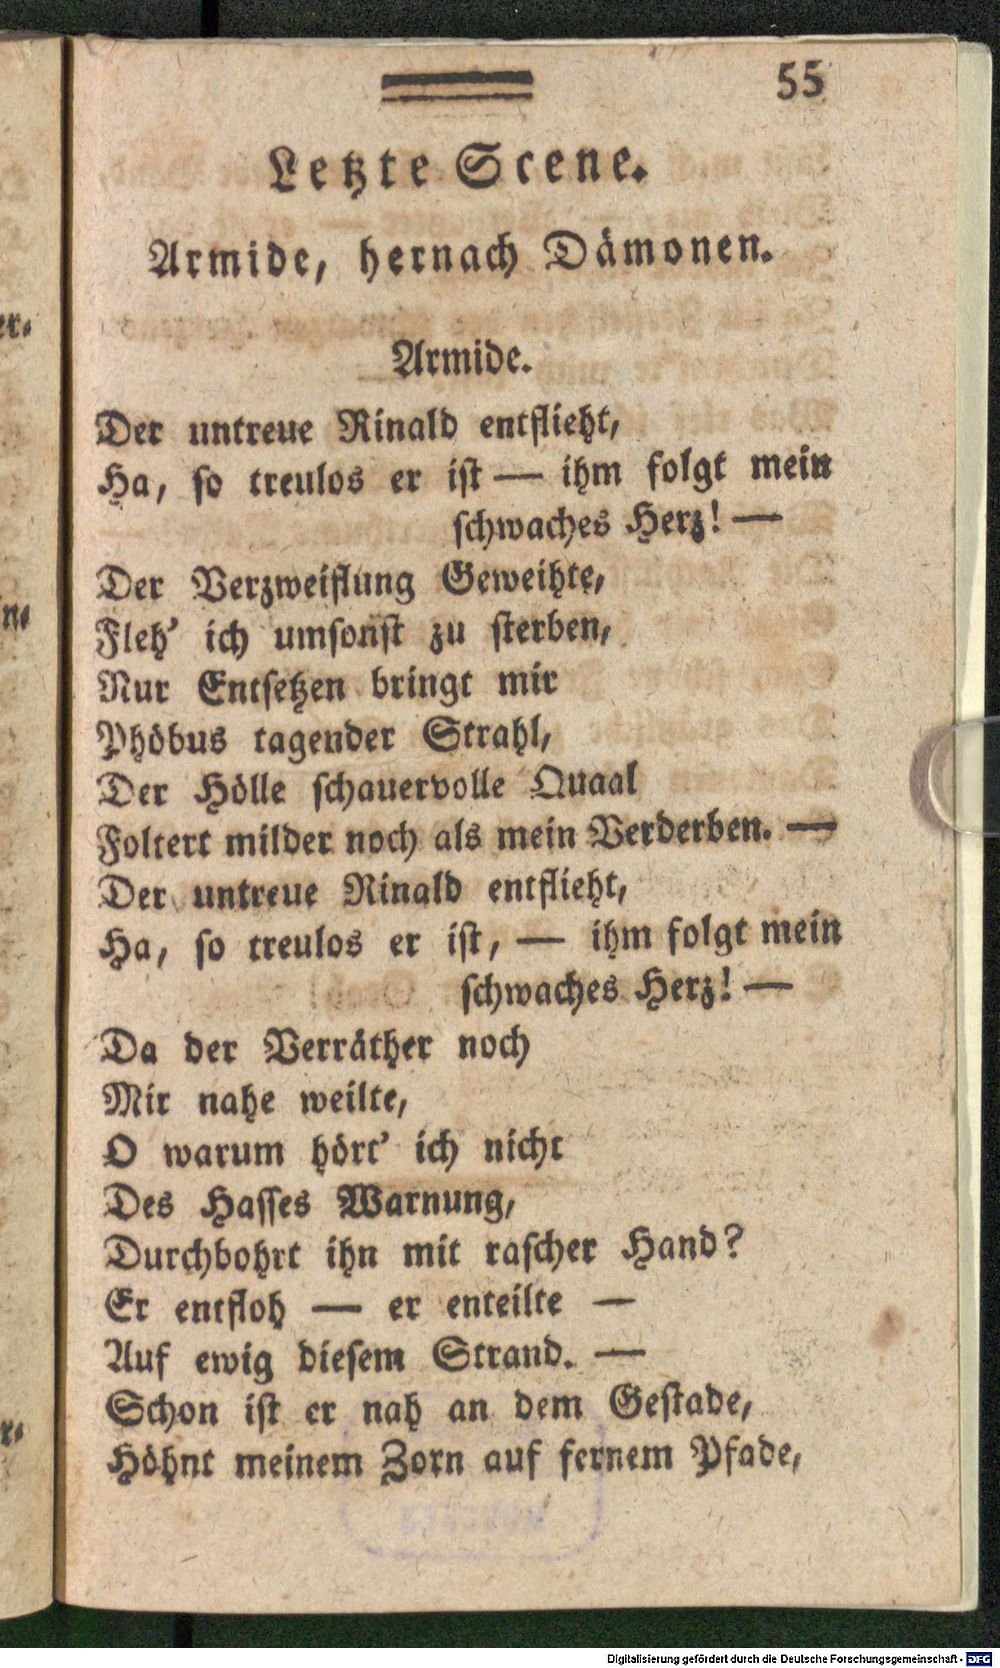 55
Letzte Scene.
Armide, hernach Dämonen.
Armide.
Der untreue Rinald entflieht,
Ha, so treulos er ist — ihm folgt mein
schwaches Herz! —
Der Verzweiflung Geweihte,
Fleh' ich umsonst zu sterben,
Nur Entsetzen bringt mir
Phöbus tagender Strahl,
Der Hölle schauervolle Quaal
Foltert milder noch als mein Verderben. —
Der untreue Rinald entflieht,
Ha, so treulos er ist, — ihm folgt mein
schwaches Herz! —
Da der Verräther noch
Mir nahe weilte,
O warum hört' ich nicht
Des Hasses Warnung,
Durchbohrt ihn mit rascher Hand?
Er entfloh — er enteilte —
Auf ewig diesem Strand. —
Schon ist er nah an dem Gestade,
Höhnt meinem Zorn auf fernem Pfade,
Digitalisierung gefördert durch die Deutsche Forschungsgemeinschaft - DFG